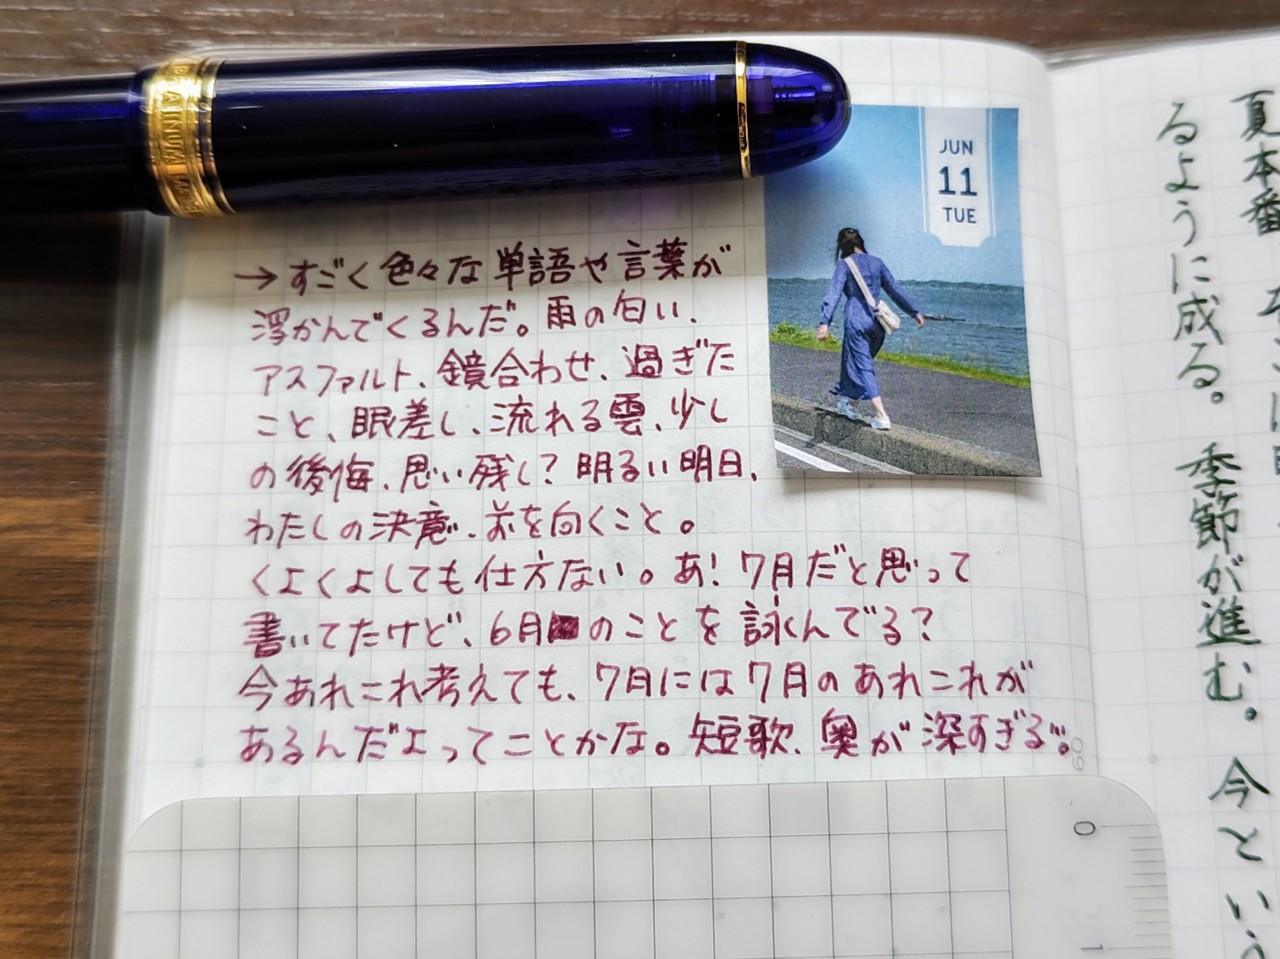 PLATINUM
JUN
11
TUE
→すごく色々な単語や言葉が
浮かんでくるんだ。雨の匂い、
アスファルト、鏡合わせ、過ぎた
こと、眠差し、流れる雲、少し
の後悔、思い残し？明るい明日、
わたしの決意、前を向くこと。
くよくよしても仕方ない。あ！7月だと思って
書いてたけど、6月のことを詠んでる？
今あれこれ考えても、7月には7月のあれこれが
あるんだよってことかな。短歌、奥が深すぎる…。
60
0
1
夏本番
るように成る。季節が進む。今という